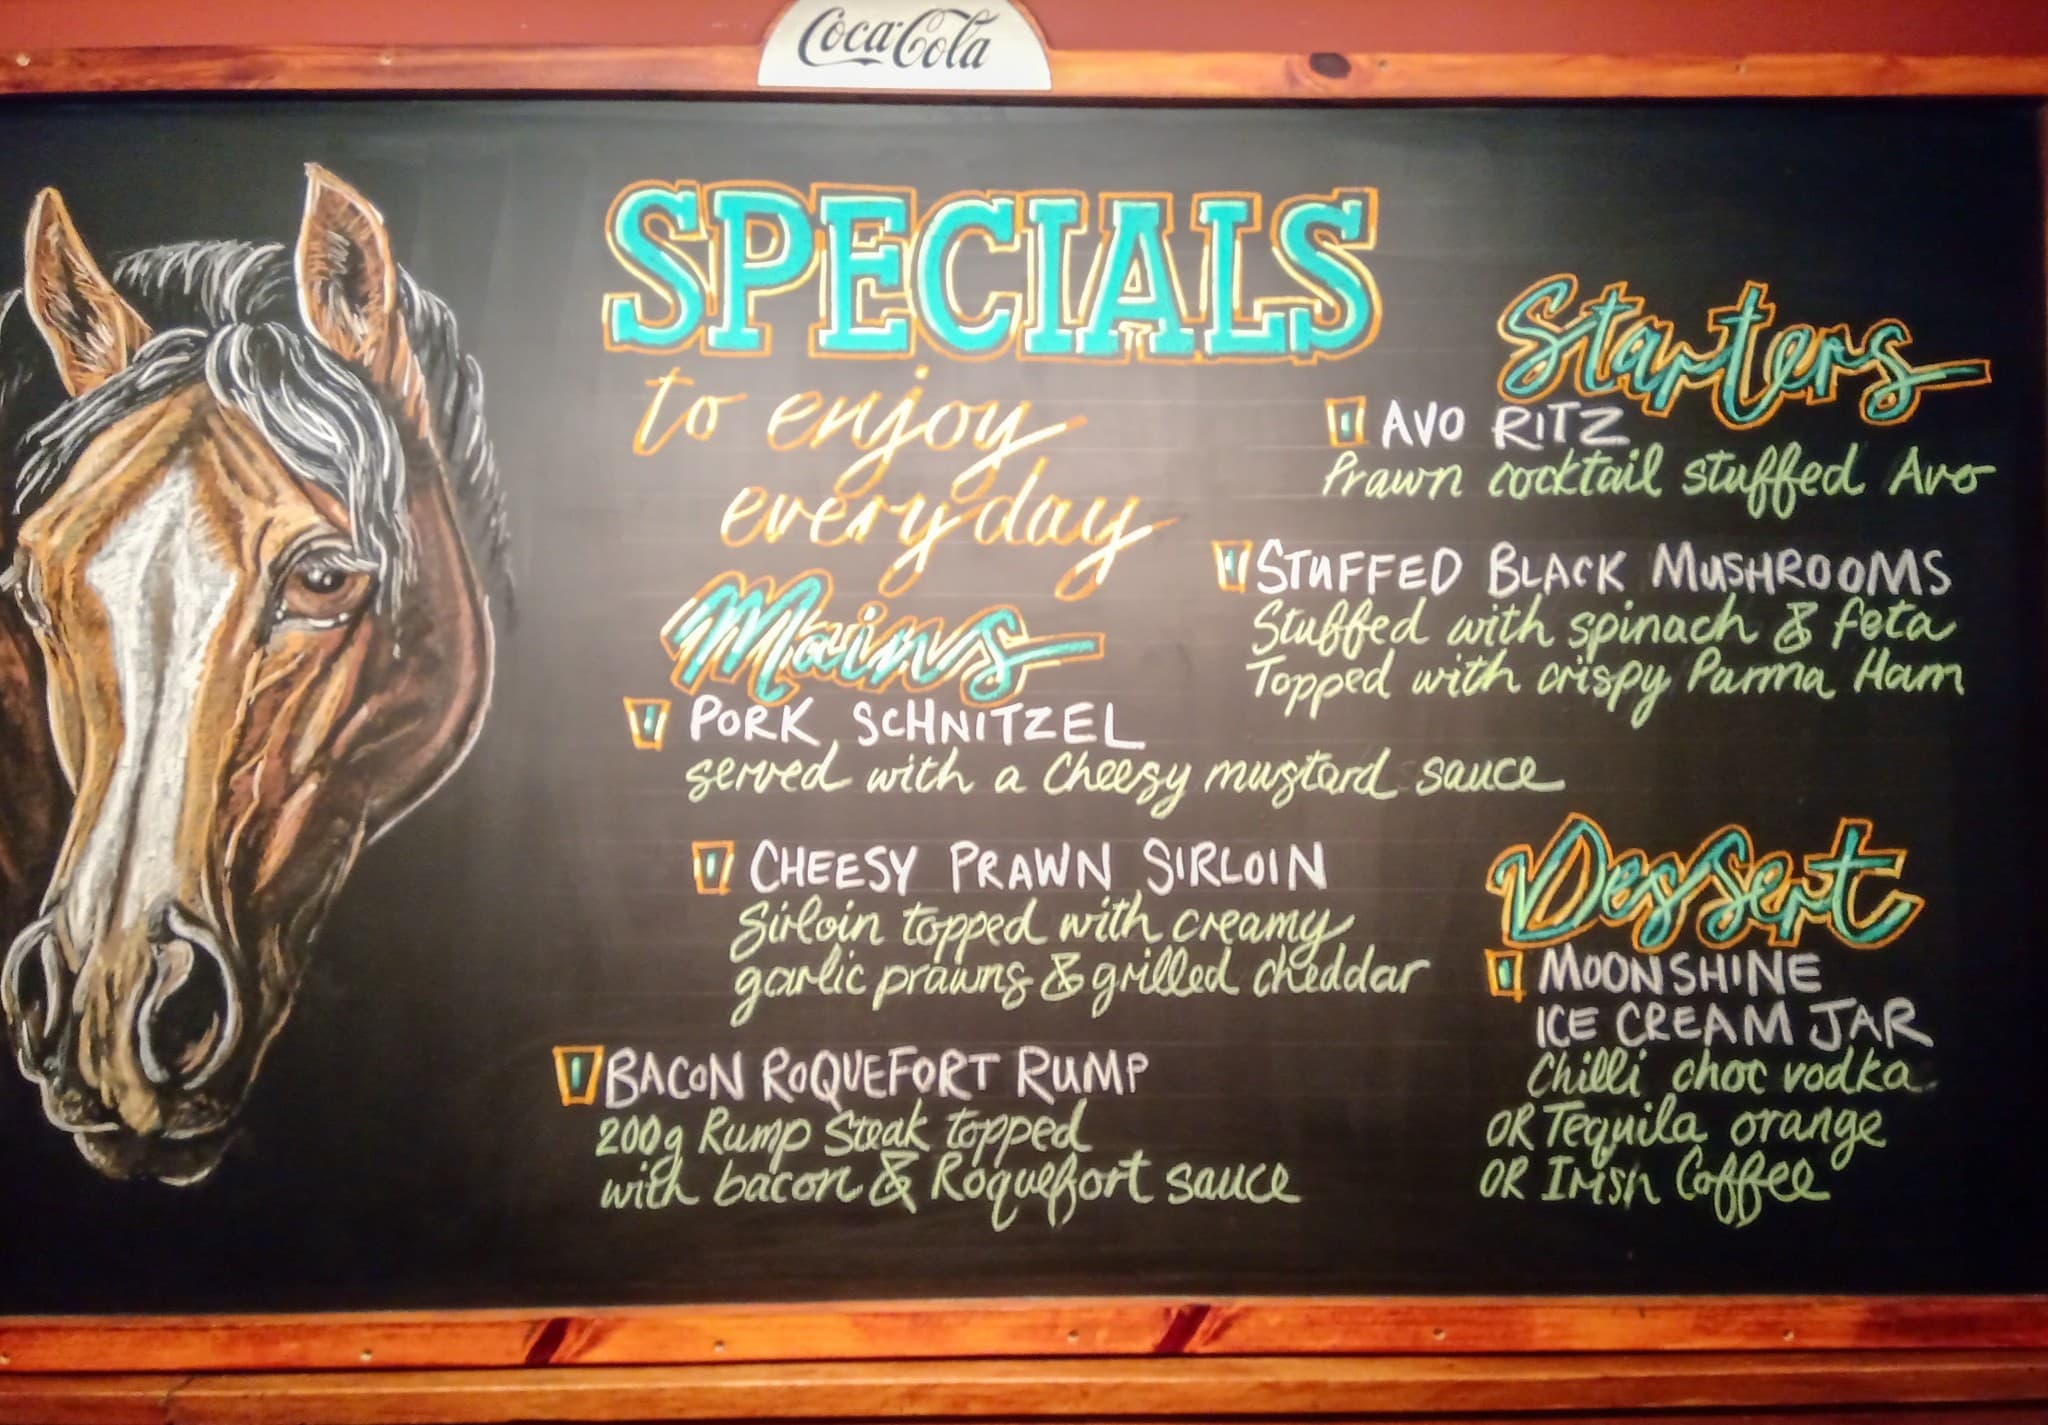 Coca-Cola
SPECIALS
to enjoy
everyday
Mains
PORK SCHNITZEL
served with a Cheesy mustard sauce
CHEESY PRAWN SIRLOIN
Sirloin topped with creamy
garlic prawns & grilled cheddar
BACON ROQUEFORT RUMP
200g Rump Steak topped
with bacon & Roquefort sauce
Starters
AVO RITZ
Prawn cocktail stuffed Avo
STUFFED BLACK MUSHROOMS
Stuffed with spinach & feta
Topped with crispy Parma Ham
Dessert
MOONSHINE
ICE CREAM JAR
Chilli choc vodka
OR Tequila orange
OR Irish Coffee